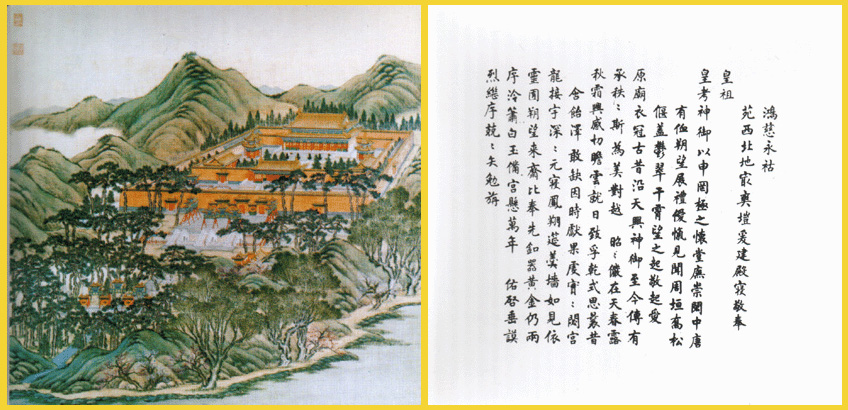 鴻慈永祜
苑西北地最爽塏爰建殿寢敬奉
皇祖
皇考神御以申罔極之懷堂廡崇閎中唐
有侐朔望展禮僾愾見聞周垣喬松
偃蓋鬱翠干霄望之起敬起愛
原廟衣冠古昔沿天興神御至今傳有
承秩〻斯為美對越 昭〻儼在天春露
秋霜興感切瞻雲就日致孚乾式思叢昔
含飴澤敢缺因時獻果虔實〻閟宮
龍接宇深〻元寢鳳翔筵羹墻如見依
靈囿朔望來齋比奉先釦器黃金仍兩
序泠簫白玉備宮懸萬年 佑啟垂謨
烈繼序兢〻矢勉旃